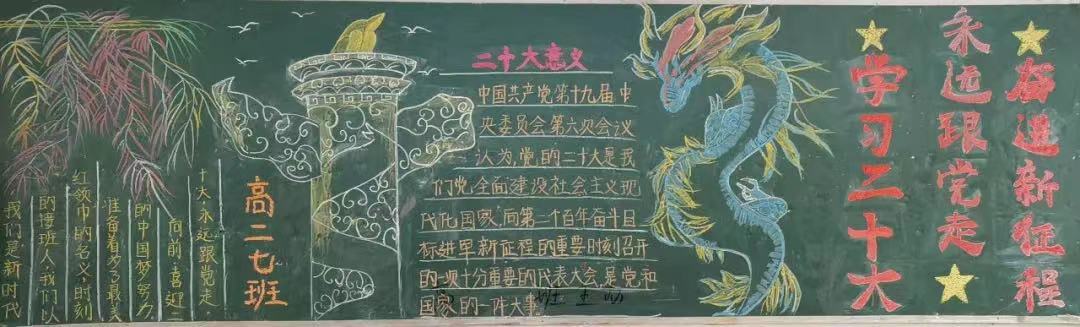 学习二十大
永远跟党走
奋进新征程
二十大意义
中国共产党第十九届中
央委员会第六次会议
认为,党的二十大是我
们党全面建设社会主义现
代化国家,向第二个百年奋斗目
标进军新征程的重要时刻召开
的一项十分重要的代表大会,是党和
国家的一件大事
高二七班
我们是新时代
的接班人,我们以
红领巾的名义,时刻
准备着为了最美
的中国梦努力
向前,喜迎二
十大,永远跟党走